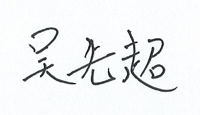 吴先超